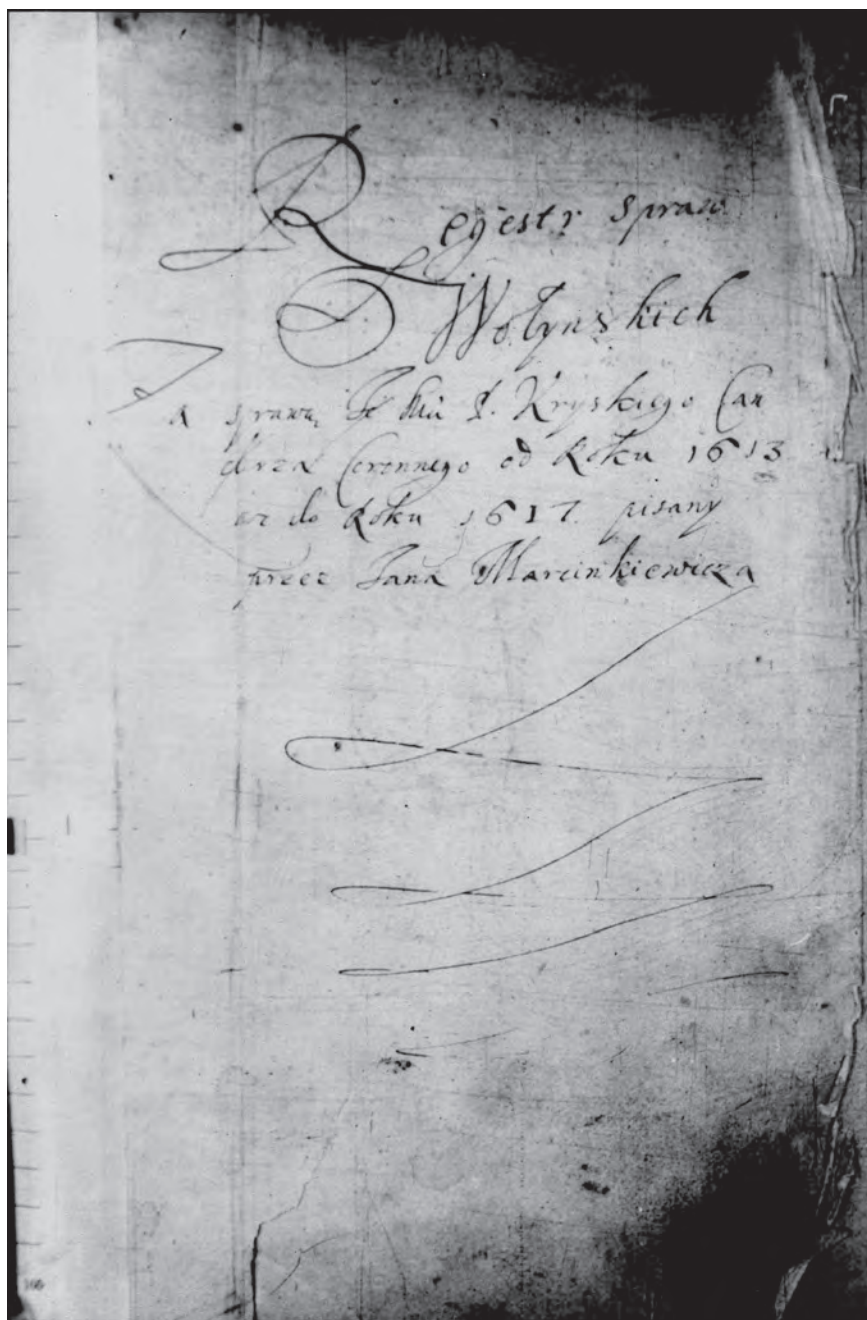 Regestr spraw
Wołynskich
Za sprawą Je P. Kryskiego Can
clerza Coronnego od Roku 1613
az do Roku 1617 pisany
przez Jana Marcinkiewicza
160